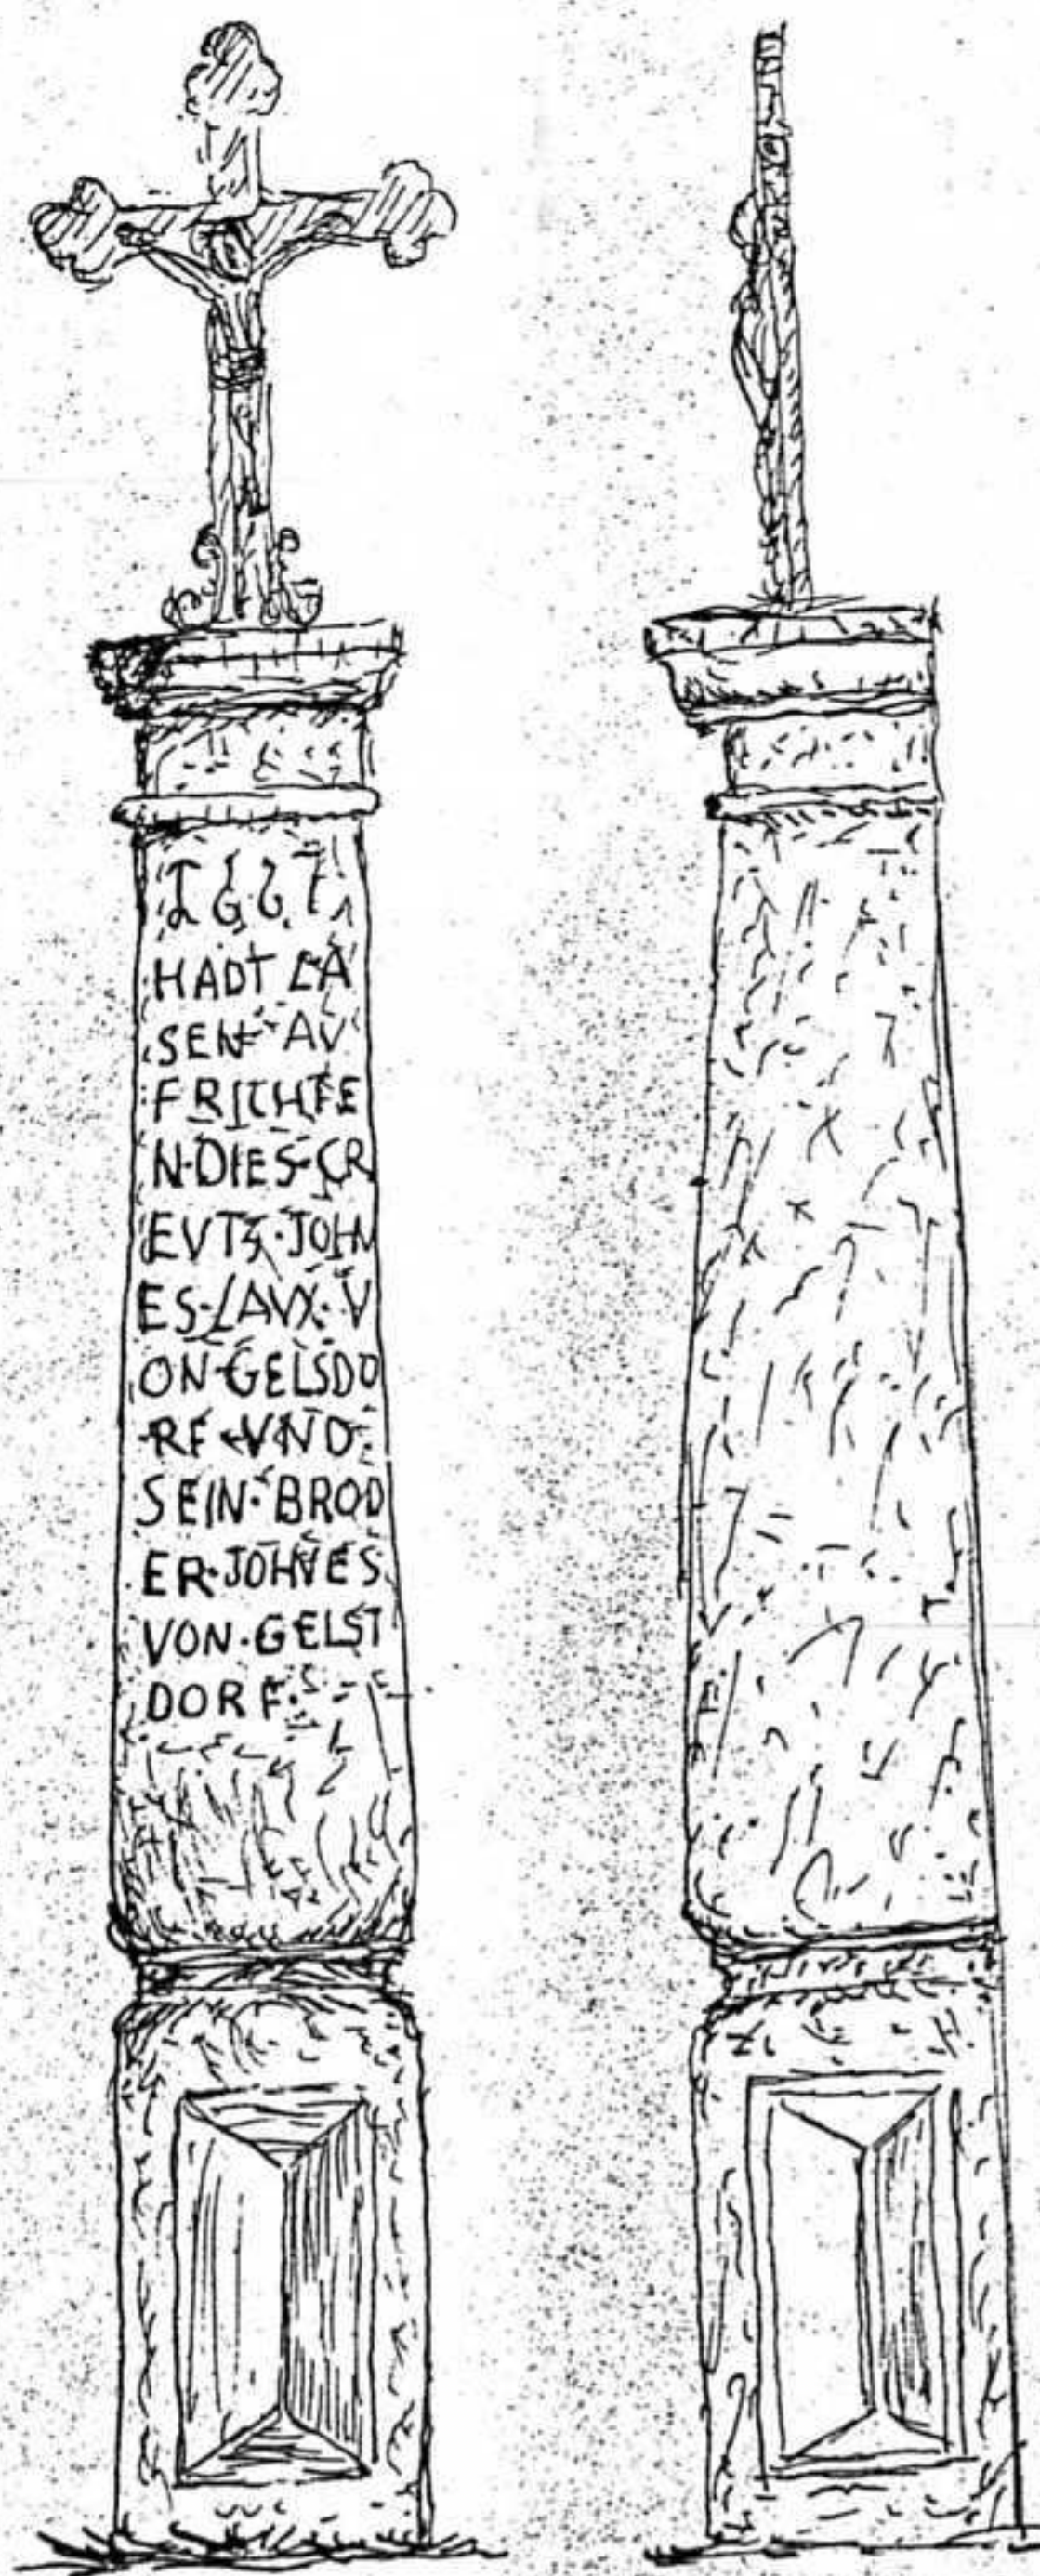 1667
HADT LA
SEN AV
FRICHTE
N·DIES·CR
EVTZ·JOHN
ES·LAVX·V
ON·GELSDO
RF VND
SEIN·BROD
ER·JOHNES
VON·GELST
DORF·